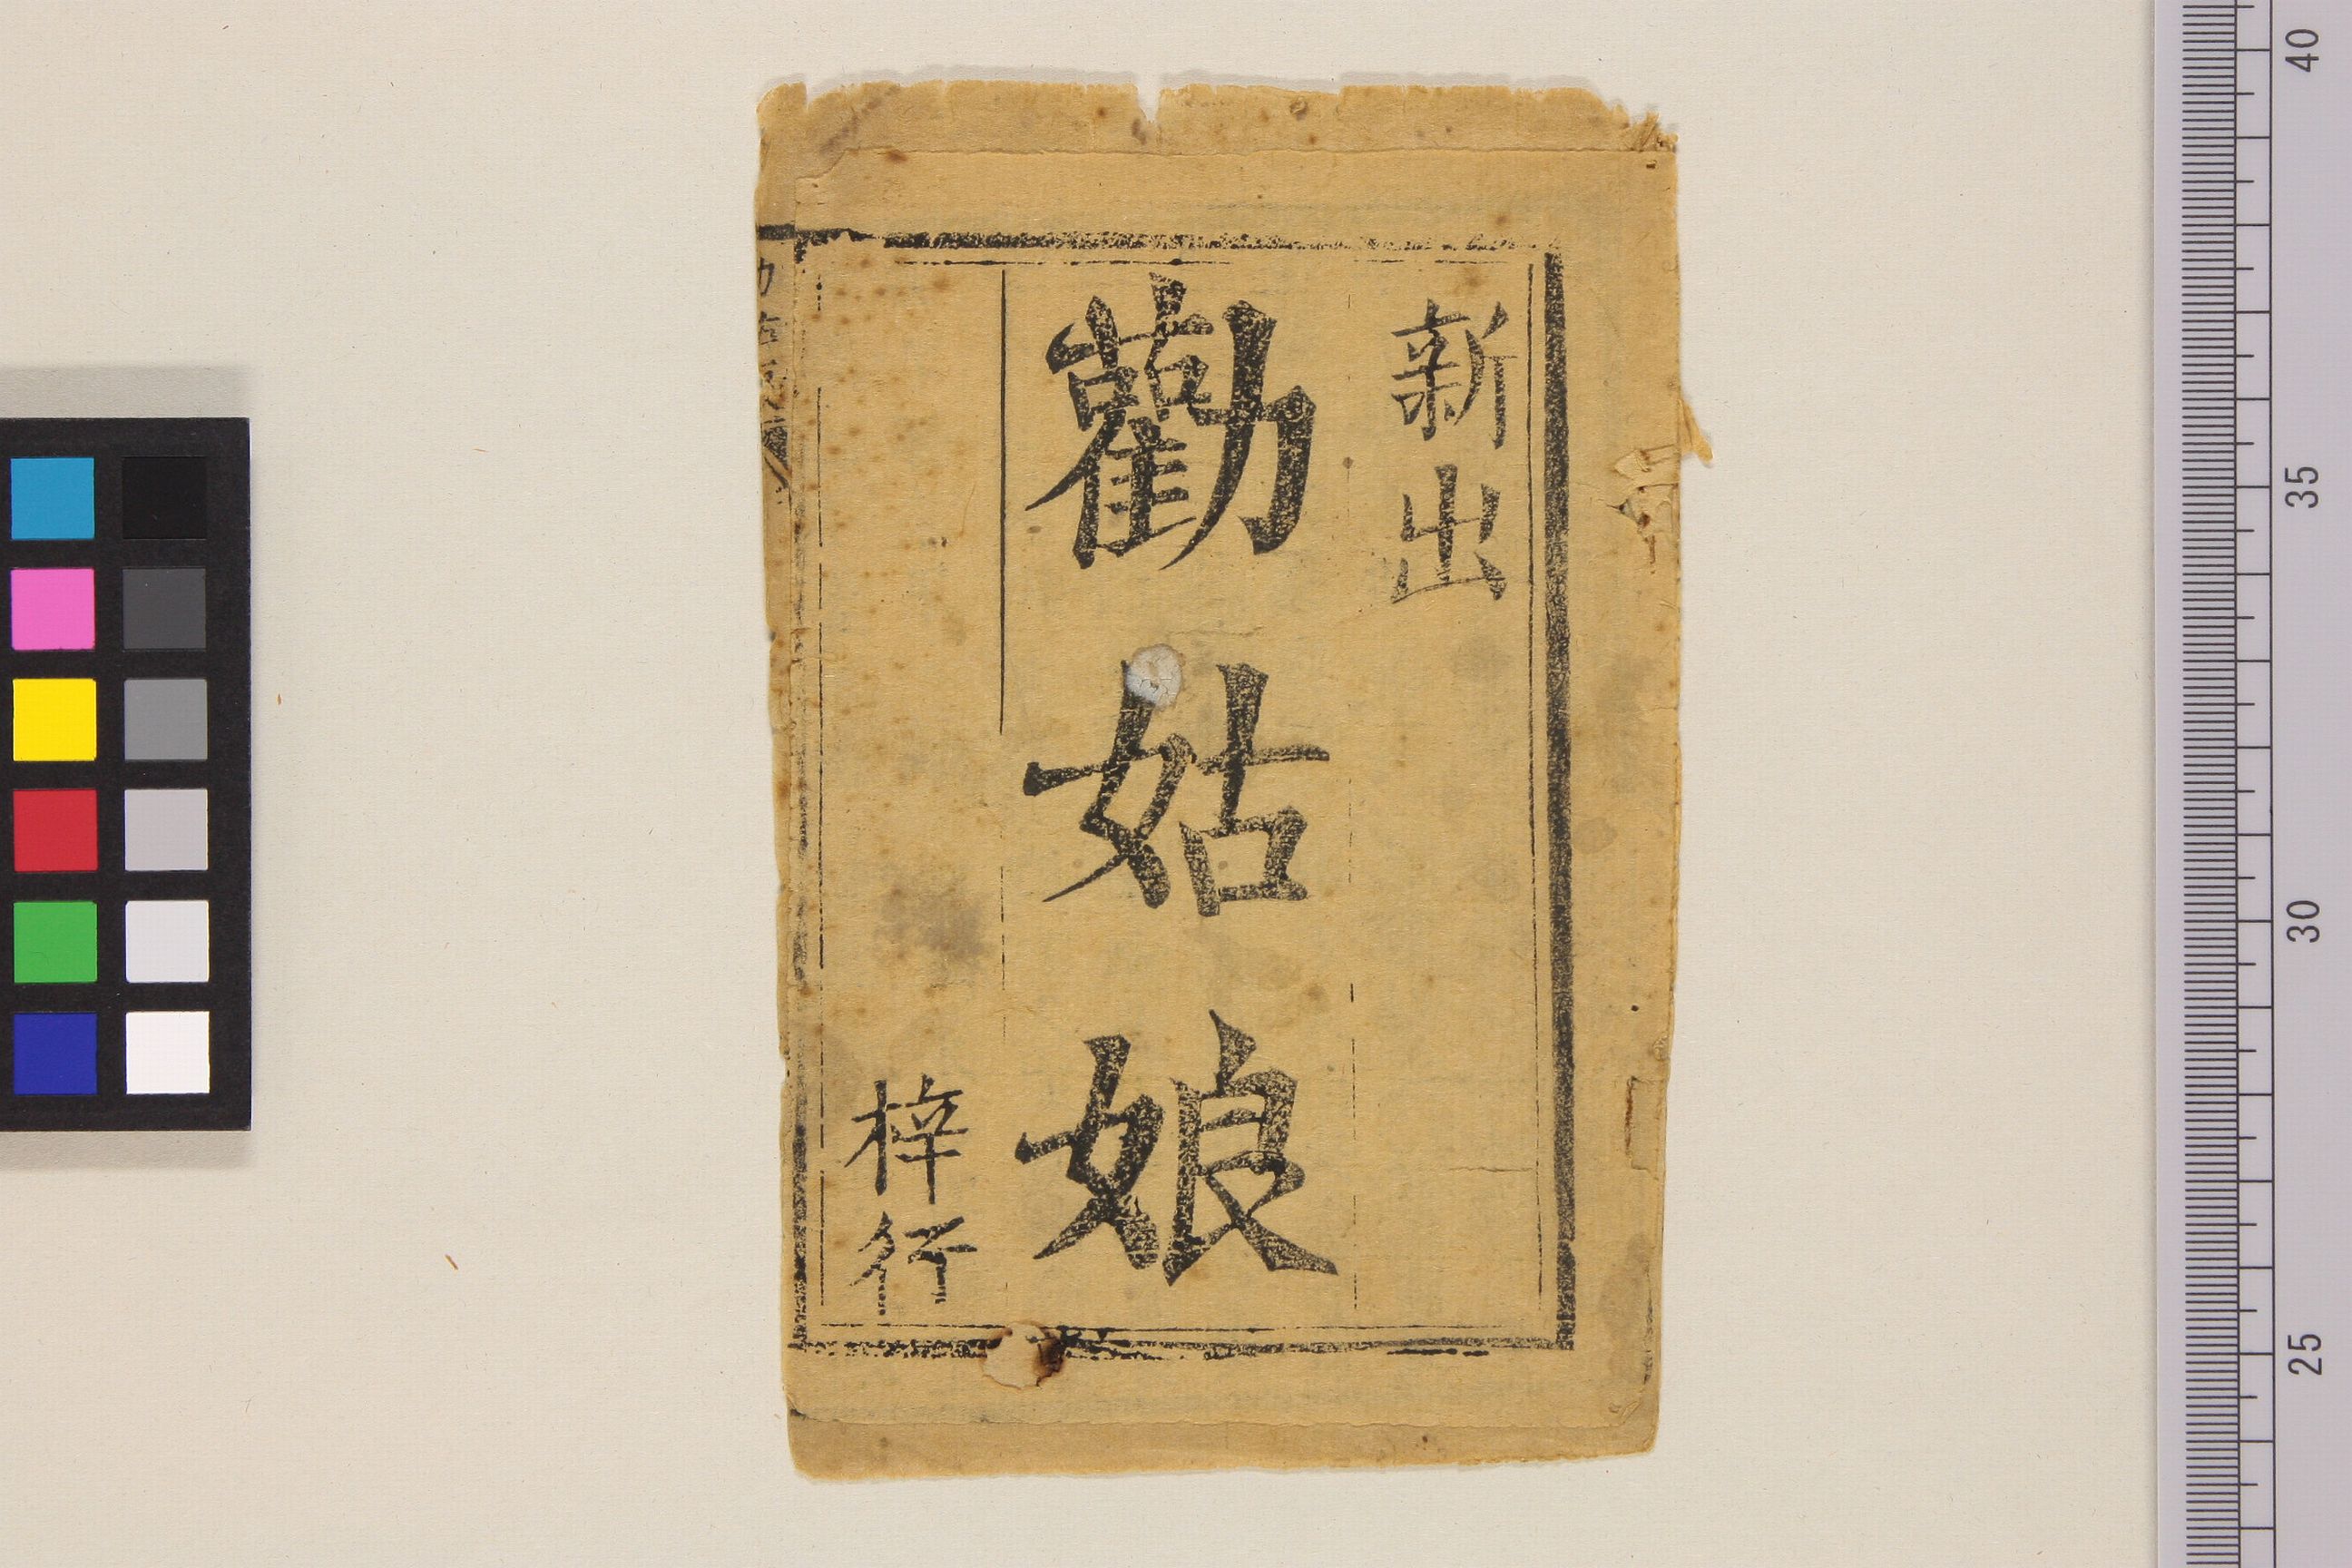 新出
勸姑娘
梓行
40
35
30
25